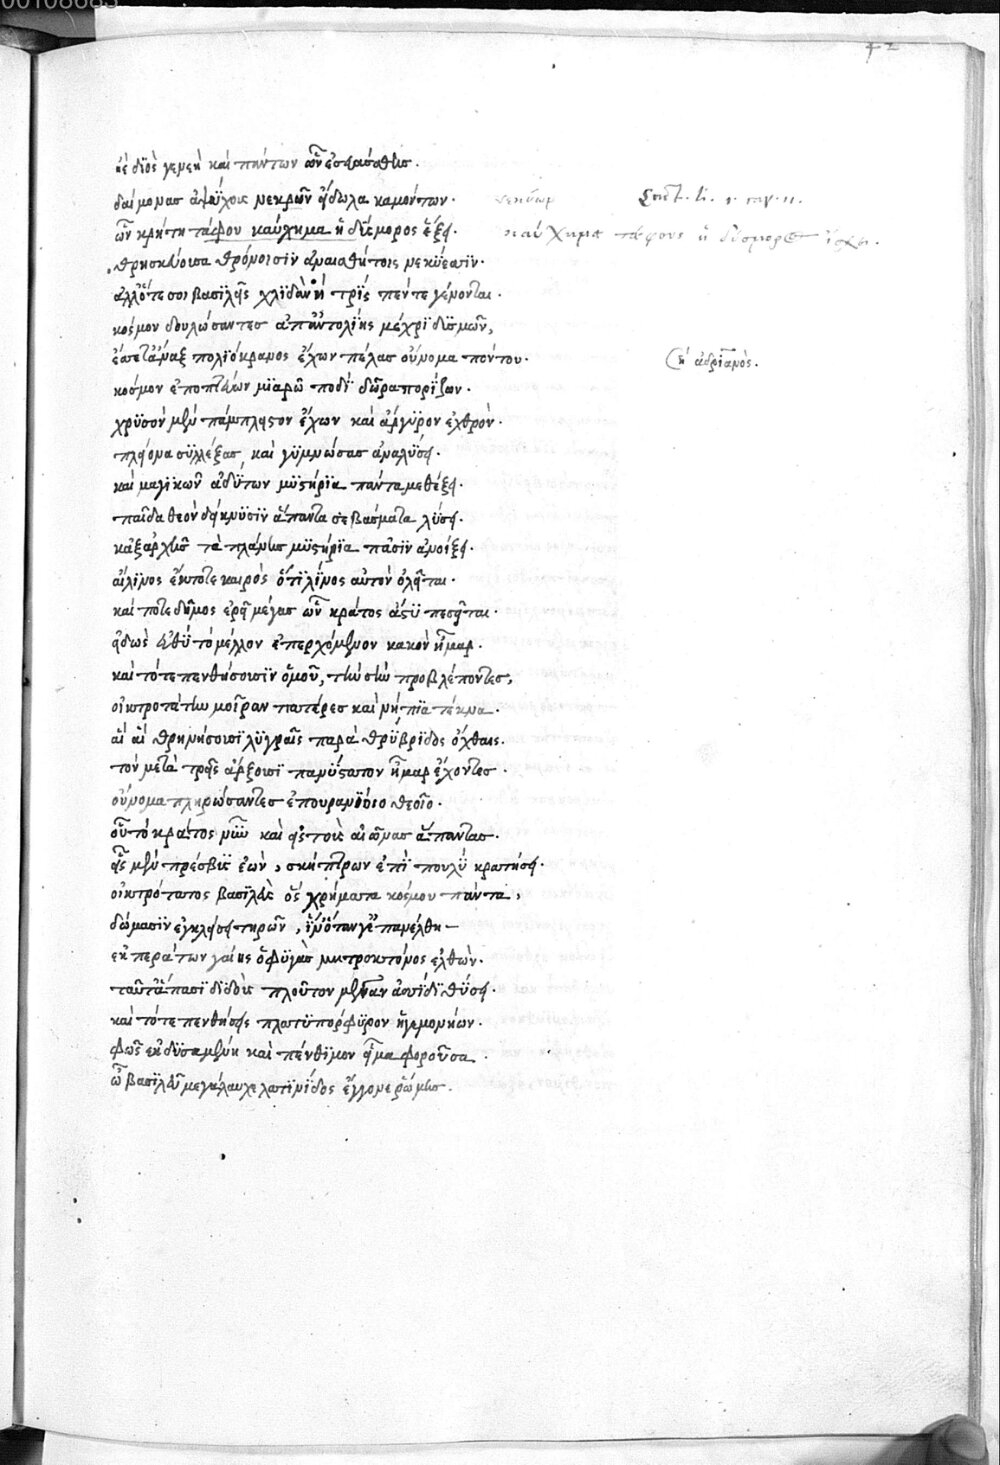 00108683
42
ἠὲ διὸς γεμεὴ καὶ πάντων ὧν ἐσεβάσθης.
δαίμονας ἀψύχοις νεκρῶν εἴδωλα καμόντων. νεκύων Lact. li. 1. cap. 11.
ὧν κρήτη τάφου καύχημα ἢ δύσμορος ἕξει. καύχημα τάφους ἡ δύσμορος ἴσχει.
θρησκεύουσα θρόνοισϊν ἀναισθήτοις νεκύεσιν.
ἀλλ' ὅτε σοι βασιλεῖς χλιδανὴ τρὶς πέντε γένονται.
κόσμον δουλώσαντες ἀπ' ἀντολίης μέχρι δϋσμῶν,
ἔσσετ' ἄναξ πολιόκρανος ἔχων πέλας οὔνομα πόντου. ἀδριανός.
κόσμον ἐποπτεύων μιαρῶ ποδὶ δῶρα πορίζων.
χρϋσὸν μὲν πάμπλειστον ἔχων καὶ ἄργυρον ἐχθρὸν.
πλείονα συλλέξας, καὶ γυμνώσας ἀναλύσει.
καὶ μαγικῶν ἀδύτων μϋστήρια πάντα μεθέξει.
παῖδα θεὸν δείκνϋσιν ἅπαντα σεβάσματα λύσει.
κἀξ ἀρχῆς τὰ πλάνης μϋστήρια πᾶσιν ἀνοίξει.
αἴλινος ἔκτοτε καιρὸς ὅτι λῖνος αὐτὸν ὀλεῖται.
καί ποτε δῆμος ἐρεῖ μέγας ὧν κράτος ἄστυ πεσεῖται.
εἰδὼς εὐθὺ τὸ μέλλον ἐπερχόμενον κακὸν ἦμαρ.
καὶ τότε πενθήσουσιν ὁμοῦ, τὴν σὴν προβλέποντες,
οἰκτροτάτην μοῖραν πατέρες καὶ νήπϊα τέκνα.
αἲ αἲ θρηνήσουσι λυγραῖς παρὰ θρύβριδος ὄχθαις.
τὸν μετὰ τρεῖς ἄρξουσι πανύστατον ἦμαρ ἔχοντες.
οὔνομα πληρώσαντες ἐπουρανίοιο θεοῖο.
οὗ τὸ κράτος νῦν καὶ εἰς τοὺς αἰῶνας ἅπαντας.
εἷς μὲν πρέσβυς ἐὼν, σκήπτρων ἐπὶ πουλὺ κρατήσει.
οἰκτρότατος βασιλεὺς ὃς χρήματα κόσμου πάντα,
δώμασιν ἐγκλείσει τηρῶν, ἵν' ὅταν γ' ἐπανέλθη
ἐκ περάτων γαίης ὁ φυγὰς μητροκτόνος ἐλθὼν.
ταῦτα ἅπασι διδοὺς πλοῦτον μέγαν ἀσίδι θύσει.
καὶ τότε πενθήσεις πλατυπόρφυρον ἡγεμονήων.
φῶς ἐκδυσαμένη καὶ πένθιμον εἷμα φοροῦσα.
ὦ βασιλὶς μεγάλαυχε λατινίδος ἔκγονε ῥώμης.